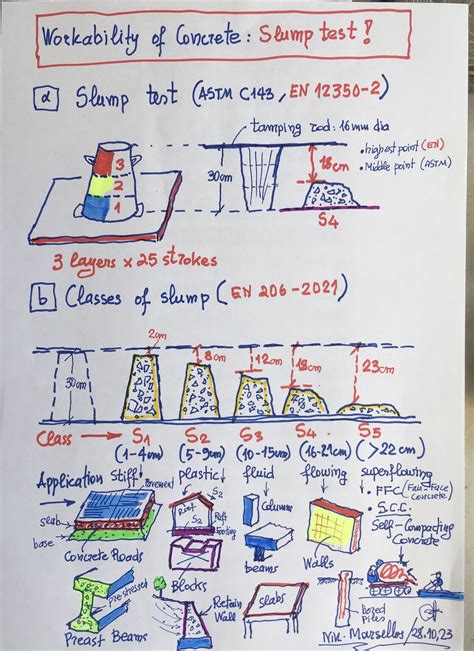 Workability of Concrete: Slump test!
a Slump test (ASTM C143, EN 12350-2)
tamping rod: 16mm dia
• highest point (EN)
• Middle point (ASTM)
3
2
1
30cm
18cm
S4
3 layers x 25 strokes
b Classes of slump (EN 206-2021)
2cm
8cm
12cm
18cm
23cm
30cm
Class → S1 S2 S3 S4 S5
(1-4cm) (5-9cm) (10-15cm) (16-21cm) (>22cm)
Application Stiff plastic fluid flowing superflowing
Pavement
slab
base
Concrete Roads
Root
S2
S2
Raft
footing
Columns
beams
Walls
• FFC (Fair-Face)
Concrete
• S.C.C.
Self-Compacting
Concrete
Pre-stressed
Precast Beams
Blocks
Retain
Wall
slabs
bored
Piles
Nik. Marsellos/28.10.23